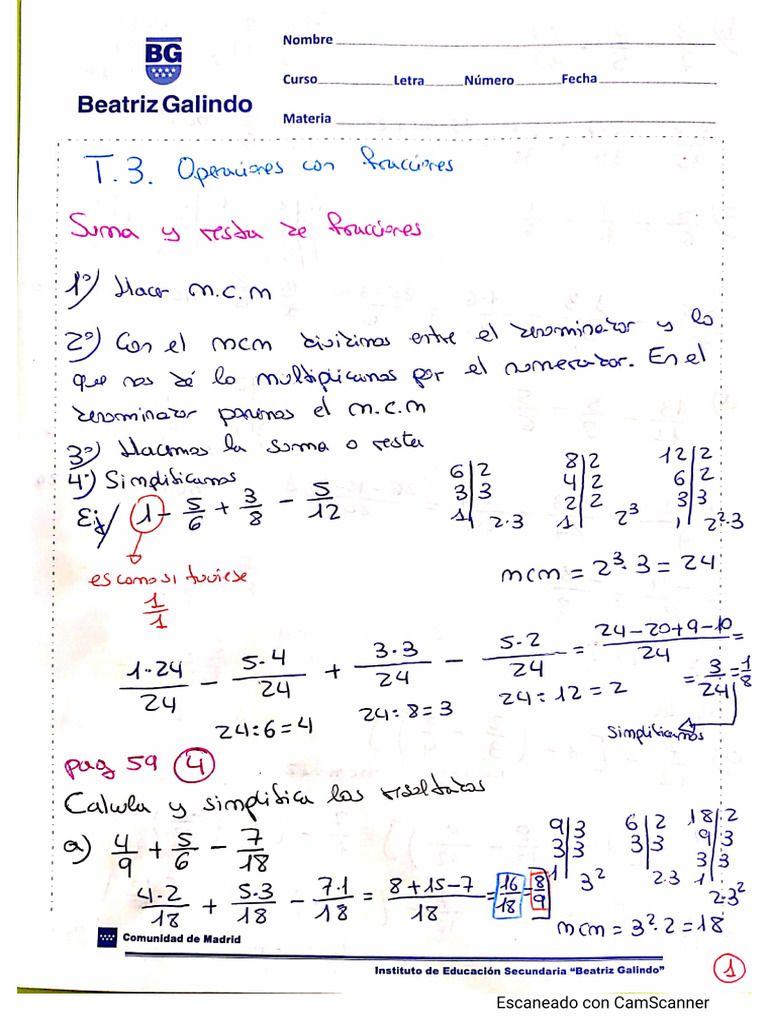 BG
Beatriz Galindo
Nombre
Curso Letra Número Fecha
Materia
T.3. Operaciones con fracciones
Suma y resta de fracciones
1º) Hacer m.c.m
2º) Con el mcm dividimos entre el denominador y lo
que nos dé lo multiplicamos por el numerador. En el
denominador ponemos el m.c.m
3º) Hacemos la suma o resta
4º) Simplificamos
Ej/ 1 - 5/6 + 3/8 - 5/12
6|2 8|2 12|2
3|3 4|2 6|2
1| 2·3 2|2 3|3
1| 2³ 1| 2²·3
es como si tuviese
1/1
mcm = 2³·3 = 24
1·24/24 - 5·4/24 + 3·3/24 - 5·2/24 = 24-20+9-10/24 =
= 3/24 = 1/8
24:6=4 24:8=3 24:12=2
Simplificamos
pag 59 4
Calcula y simplifica los resultados
a) 4/9 + 5/6 - 7/18
9|3 6|2 18|2
3|3 3|3 9|3
1| 3² 2·3 3|3
1| 2·3²
4·2/18 + 5·3/18 - 7·1/18 = 8+15-7/18 = 16/18 = 8/9
mcm = 3²·2 = 18
Comunidad de Madrid
Instituto de Educación Secundaria "Beatriz Galindo"
1
Escaneado con CamScanner